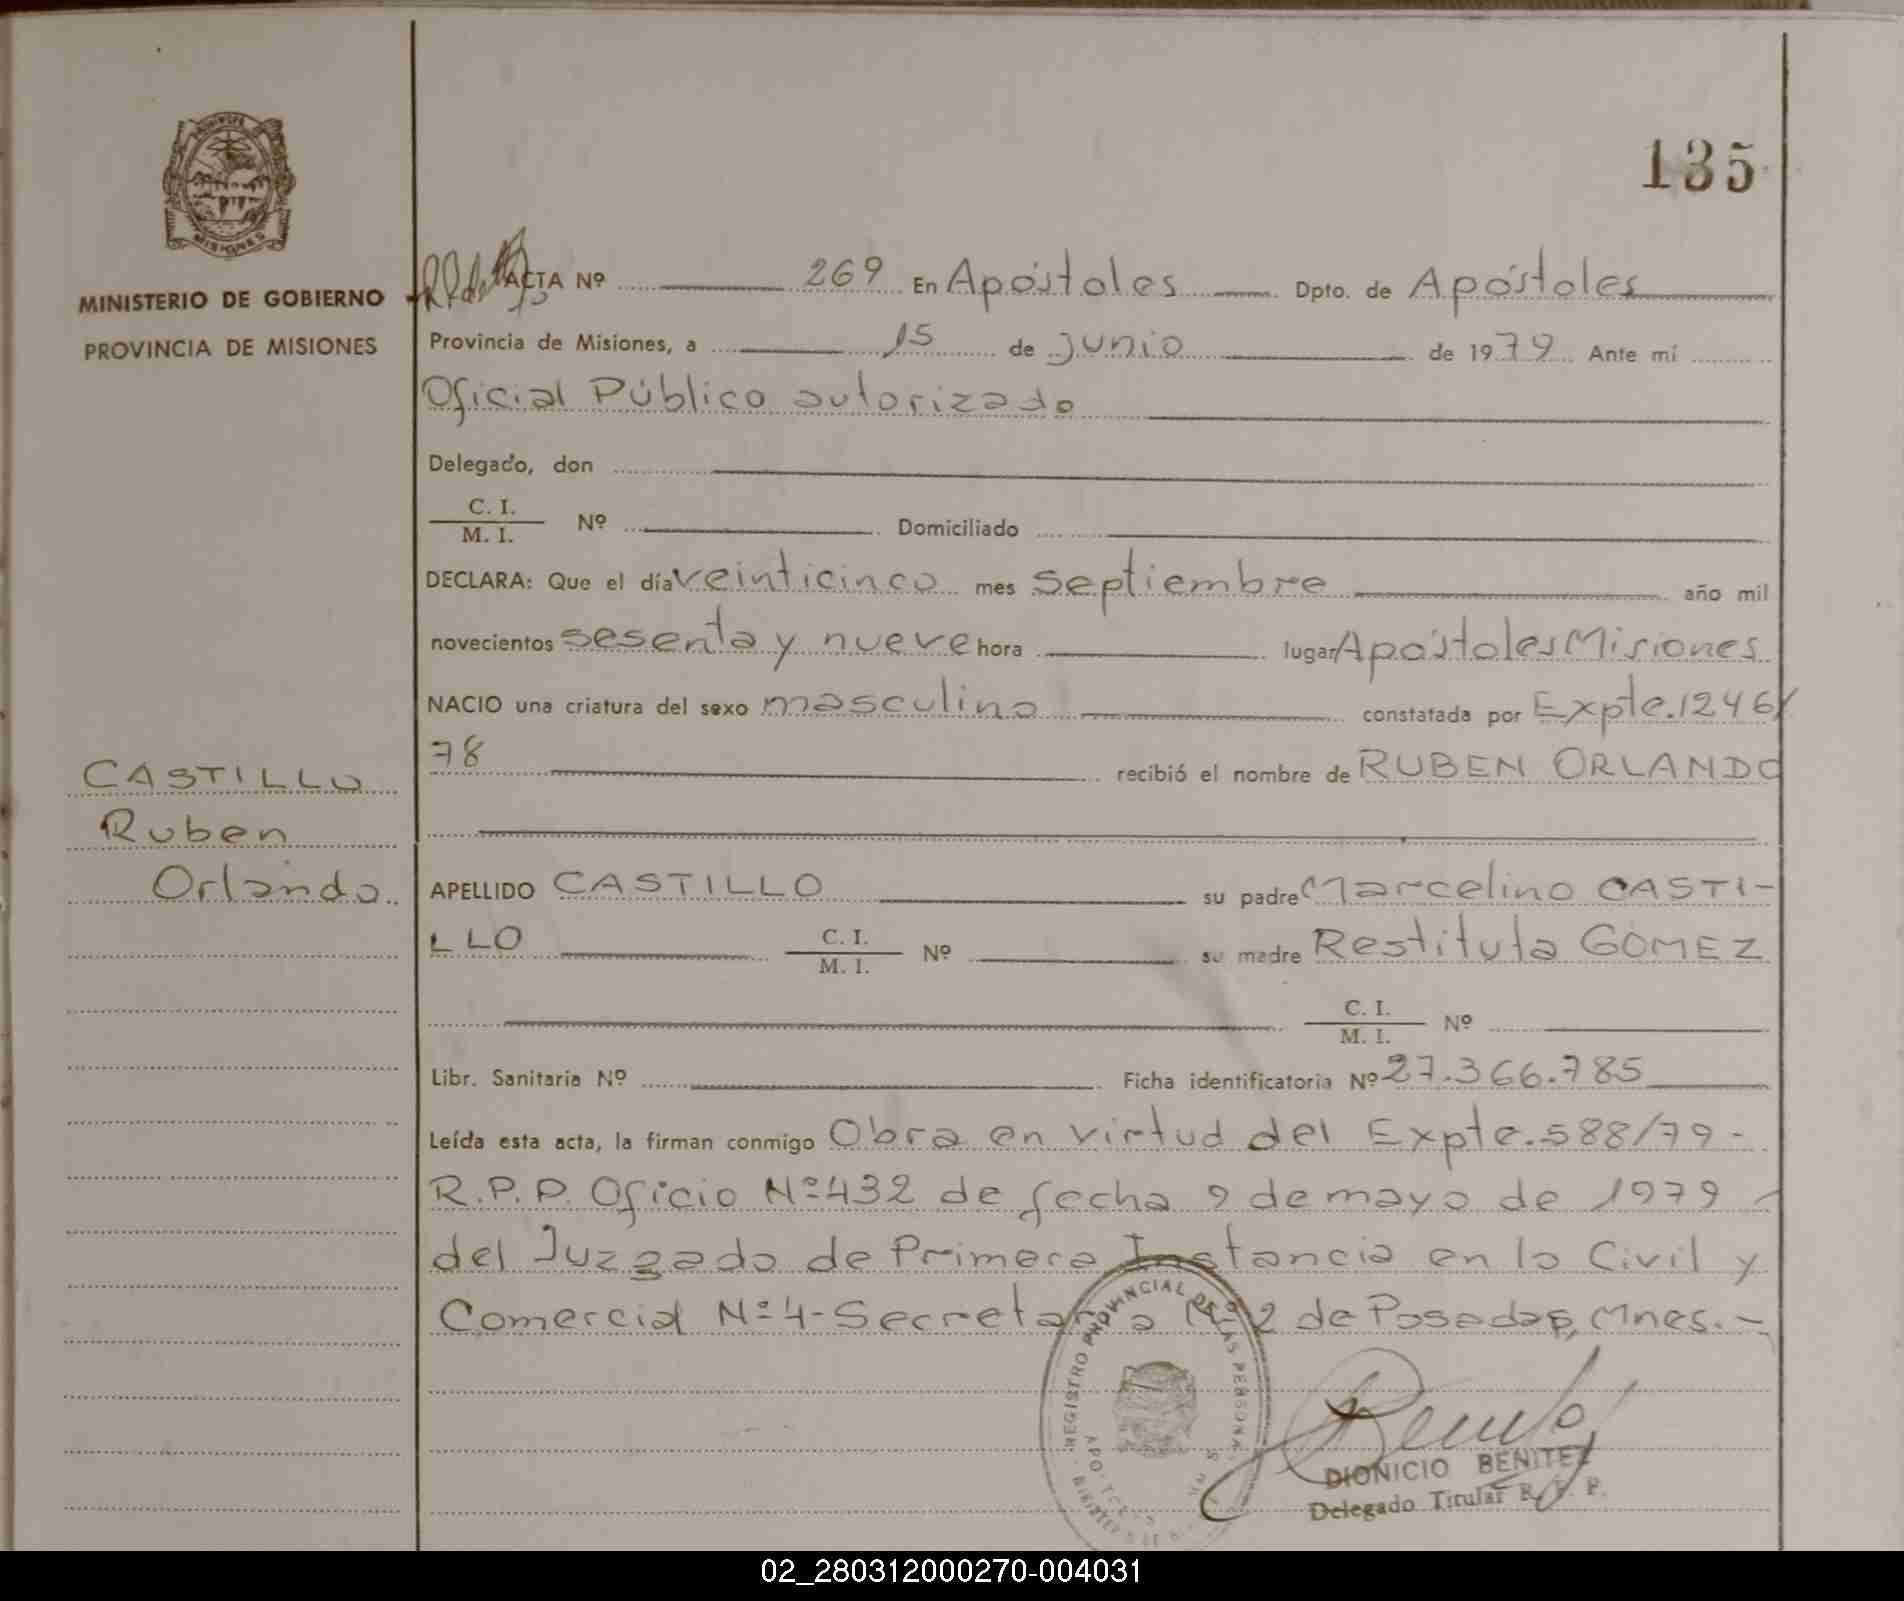 135
MINISTERIO DE GOBIERNO
PROVINCIA DE MISIONES
ACTA Nº 269 En Apóstoles Dpto. de Apóstoles
Provincia de Misiones, a 15 de junio de 1979 Ante mí
Oficial Público autorizado
Delegado, don
C. I.
M. I. Nº Domiciliado
DECLARA: Que el día veinticinco mes septiembre año mil
novecientos sesenta y nueve hora lugar Apóstoles Misiones
NACIO una criatura del sexo masculino constatada por Expte. 1246/
78 recibió el nombre de RUBEN ORLANDO
CASTILLO
Ruben
Orlando.
APELLIDO CASTILLO su padre Marcelino CASTI-
LLO C. I. M. I. Nº su madre Restituta GOMEZ
C. I. M. I. Nº
Libr. Sanitaria Nº Ficha identificatoria Nº 27.366.785
Leída esta acta, la firman conmigo Obra en virtud del Expte. 588/79-
R.P.P. Oficio Nº 432 de fecha 9 de mayo de 1979
del Juzgado de Primera Instancia en lo Civil y
Comercial Nº 4-Secretaria Nº 2 de Posadas, Mnes.-
REGISTRO PROVINCIAL DE LAS PERSONAS
DIONICIO BENITEZ
Delegado Titular R. P. P.
02_280312000270-004031